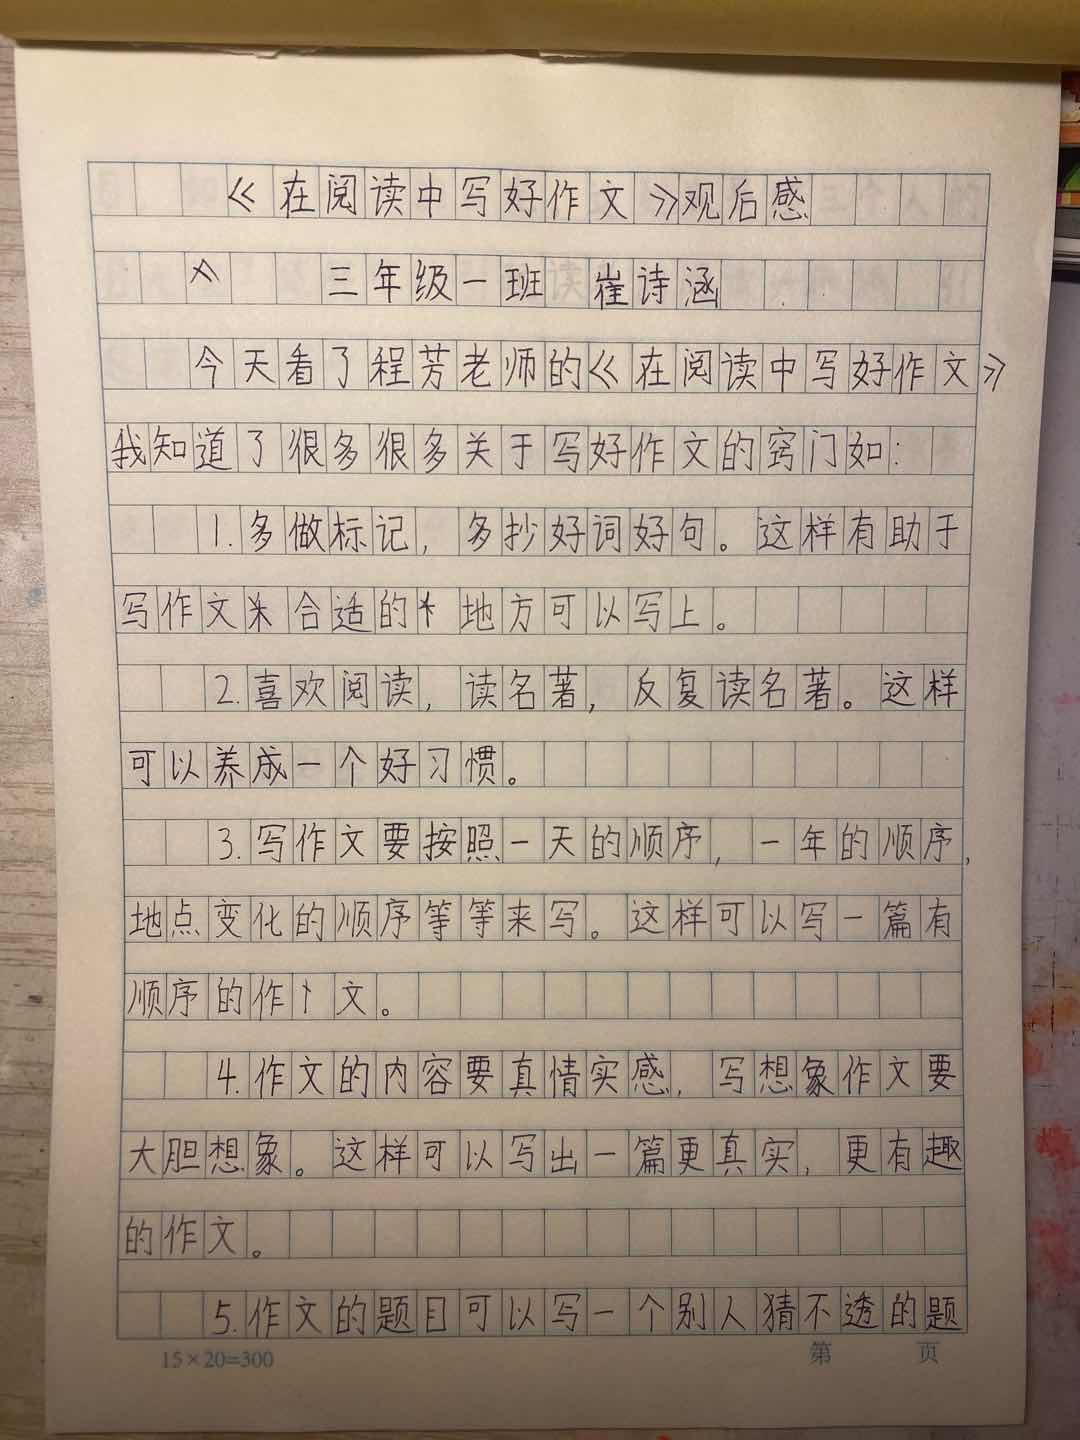 《在阅读中写好作文》观后感
三年级一班 崔诗涵
今天看了程芳老师的《在阅读中写好作文》
我知道了很多很多关于写好作文的窍门如：
1.多做标记，多抄好词好句。这样有助于
写作文合适的地方可以写上。
2.喜欢阅读，读名著，反复读名著。这样
可以养成一个好习惯。
3.写作文要按照一天的顺序，一年的顺序，
地点变化的顺序等等来写。这样可以写一篇有
顺序的作文。
4.作文的内容要真情实感，写想象作文要
大胆想象。这样可以写出一篇更真实，更有趣
的作文。
5.作文的题目可以写一个别人猜不透的题
15×20=300 第 页